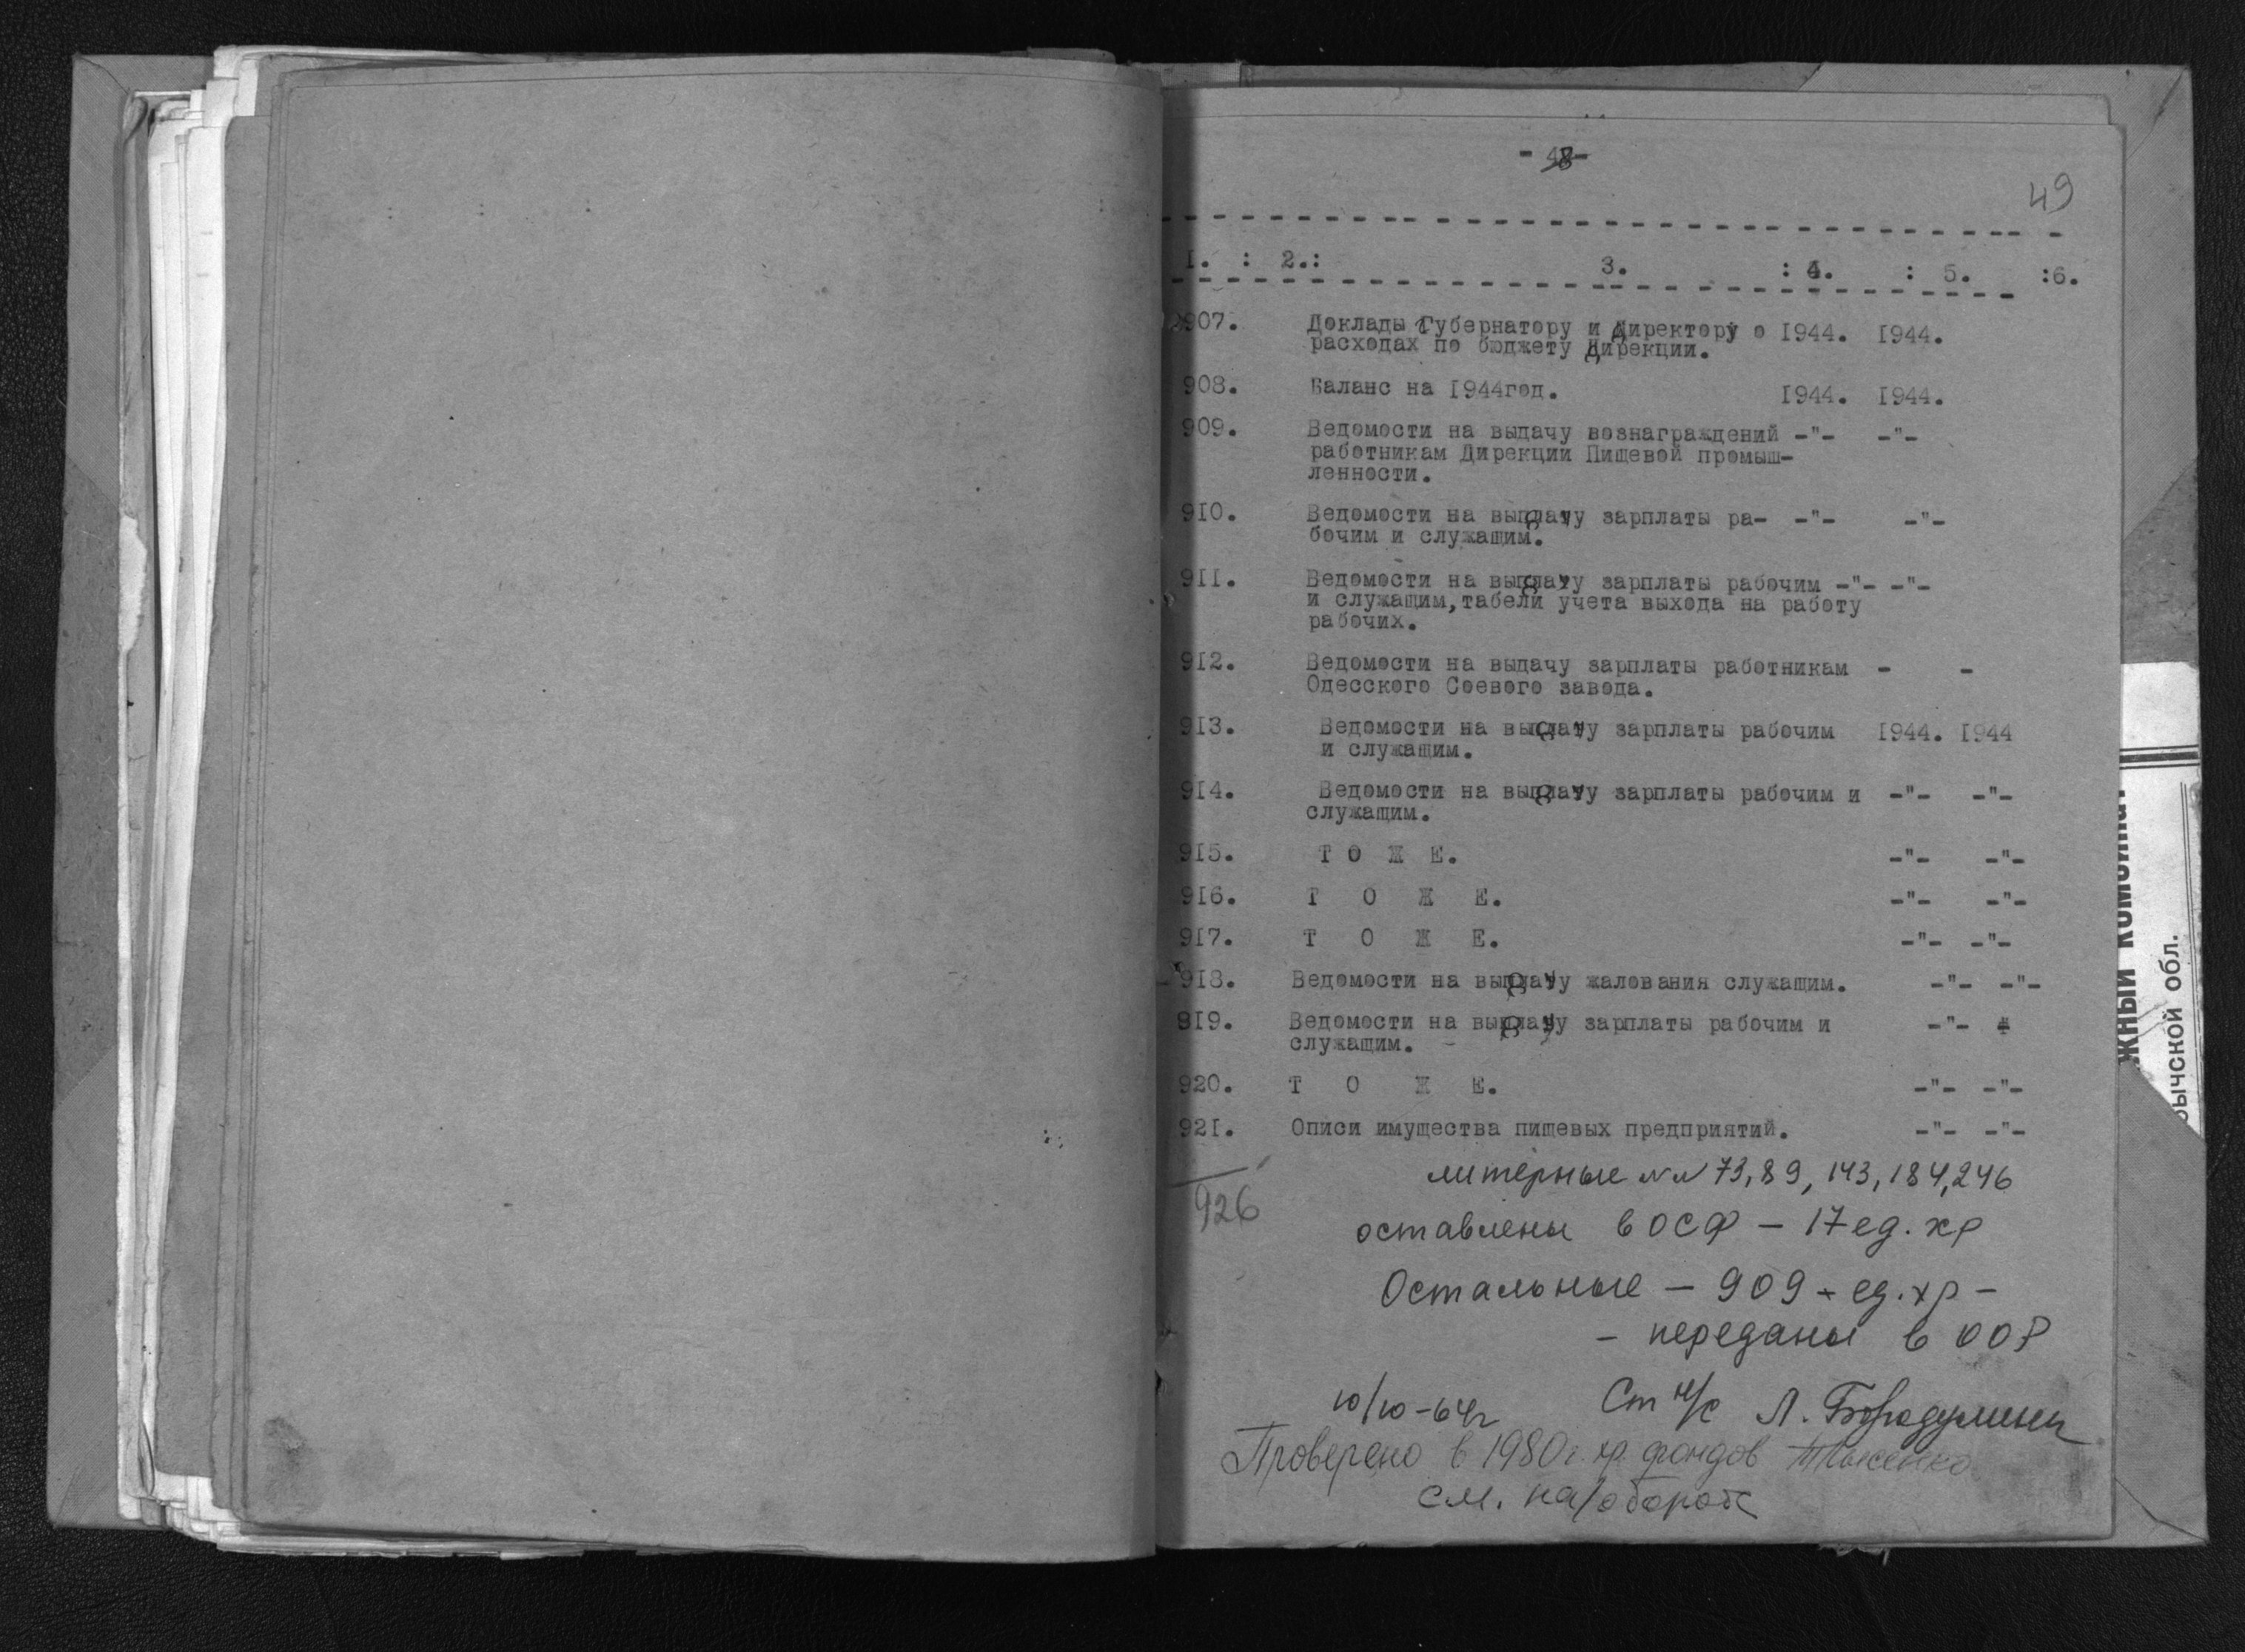 - 48 -
49
1. : 2.: 3. : 4. : 5. :6.
907. Доклады Губернатору и Директору о 1944. 1944.
расходах по бюджету Дирекции.
908. Баланс на 1944год. 1944. 1944.
909. Ведомости на выдачу вознаграждений -"- -"-
работникам Дирекции Пищевой промыш-
ленности.
910. Ведомости на выдачу зарплаты ра- -"- -"-
бочим и служащим.
911. Ведомости на выдачу зарплаты рабочим -"- -"-
и служащим,табели учета выхода на работу
рабочих.
912. Ведомости на выдачу зарплаты работникам - -
Одесского Соевого завода.
913. Ведомости на выдачу зарплаты рабочим 1944. 1944
и служащим.
914. Ведомости на выдачу зарплаты рабочим и -"- -"-
служащим.
915. Т О Ж Е. -"- -"-
916. Т О Ж Е. -"- -"-
917. Т О Ж Е. -"- -"-
918. Ведомости на выдачу жалования служащим. -"- -"-
919. Ведомости на выдачу зарплаты рабочим и -"-
служащим.
920. Т О Ж Е. -"- -"-
921. Описи имущества пищевых предприятий. -"- -"-
литерные NN 73, 89, 143, 184, 246
926
оставлены в ОСФ — 17 ед. хр
Остальные — 909 - ед. хр —
— переданы в
10/10-64г Ст н/с Л.
Проверено в 1980г. хр. фондов
см. на обороте
ычской обл.